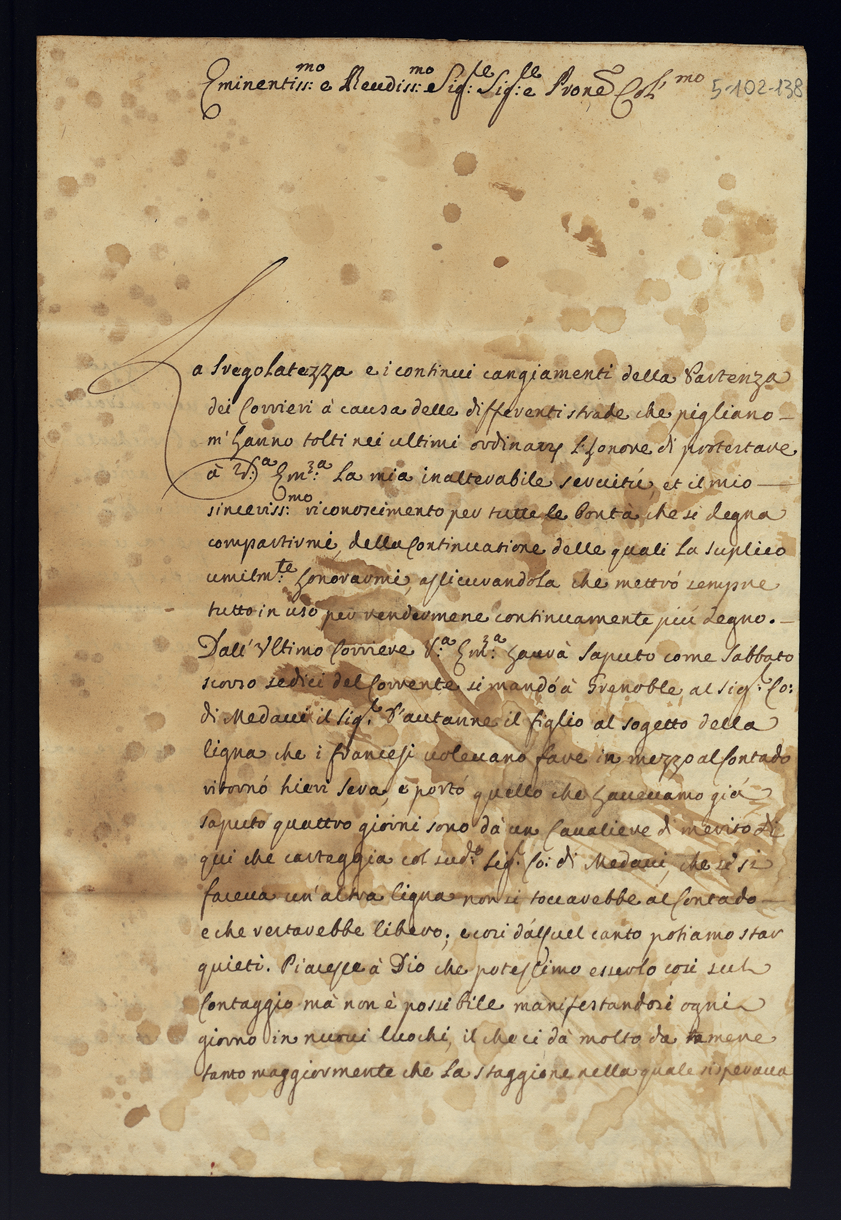 Eminentiss:mo e Reudiss:mo Sig:re Sig:re e Prone Col:mo 5-102-138
La sregolatezza e i continui cangiamenti della Partenza
dei Corrieri à causa delle differenti strade che pigliano
m'hanno tolti nei ultimi ordinarÿ l'honore di protestare
à V:a Em:za la mia inalterabile seruitù, et il mio
sinceriss:mo riconoscimento per tutte le bontà che si degna
compartirmi, della Continuatione delle quali la suplico
umilm:te honorarmi, assicurandola che mettrò sempre
tutto in uso per rendermene continuamente più degno.
Dall'Vltimo Corriere V:a Em:za haurà saputo come sabbato
scorso sedici del Corrente si mandò à Grenoble al Sig:r Co:
di Medaui il Sig:r d'autanne il figlio al sogetto della
ligna che i francesi uoleuano fare in mezzo al Contado
ritornò hieri sera, e portò quello che haueuamo già
saputo quattro giorni sono dà un Caualiere di merito di
qui che carteggia col sud:o Sig:r Co: di Medaui, che se si
faceua un'altra ligna non si toccarebbe al Contado
e che restarebbe libero; e cosi dà quel canto potiamo star
quieti. Piacesse à Dio che potessimo esserlo cosi sul
Contaggio mà non è possibile manifestandosi ogni
giorno in nuoui luochi, il che ci dà molto da temere
tanto maggiormente che la staggione nella quale si speraua